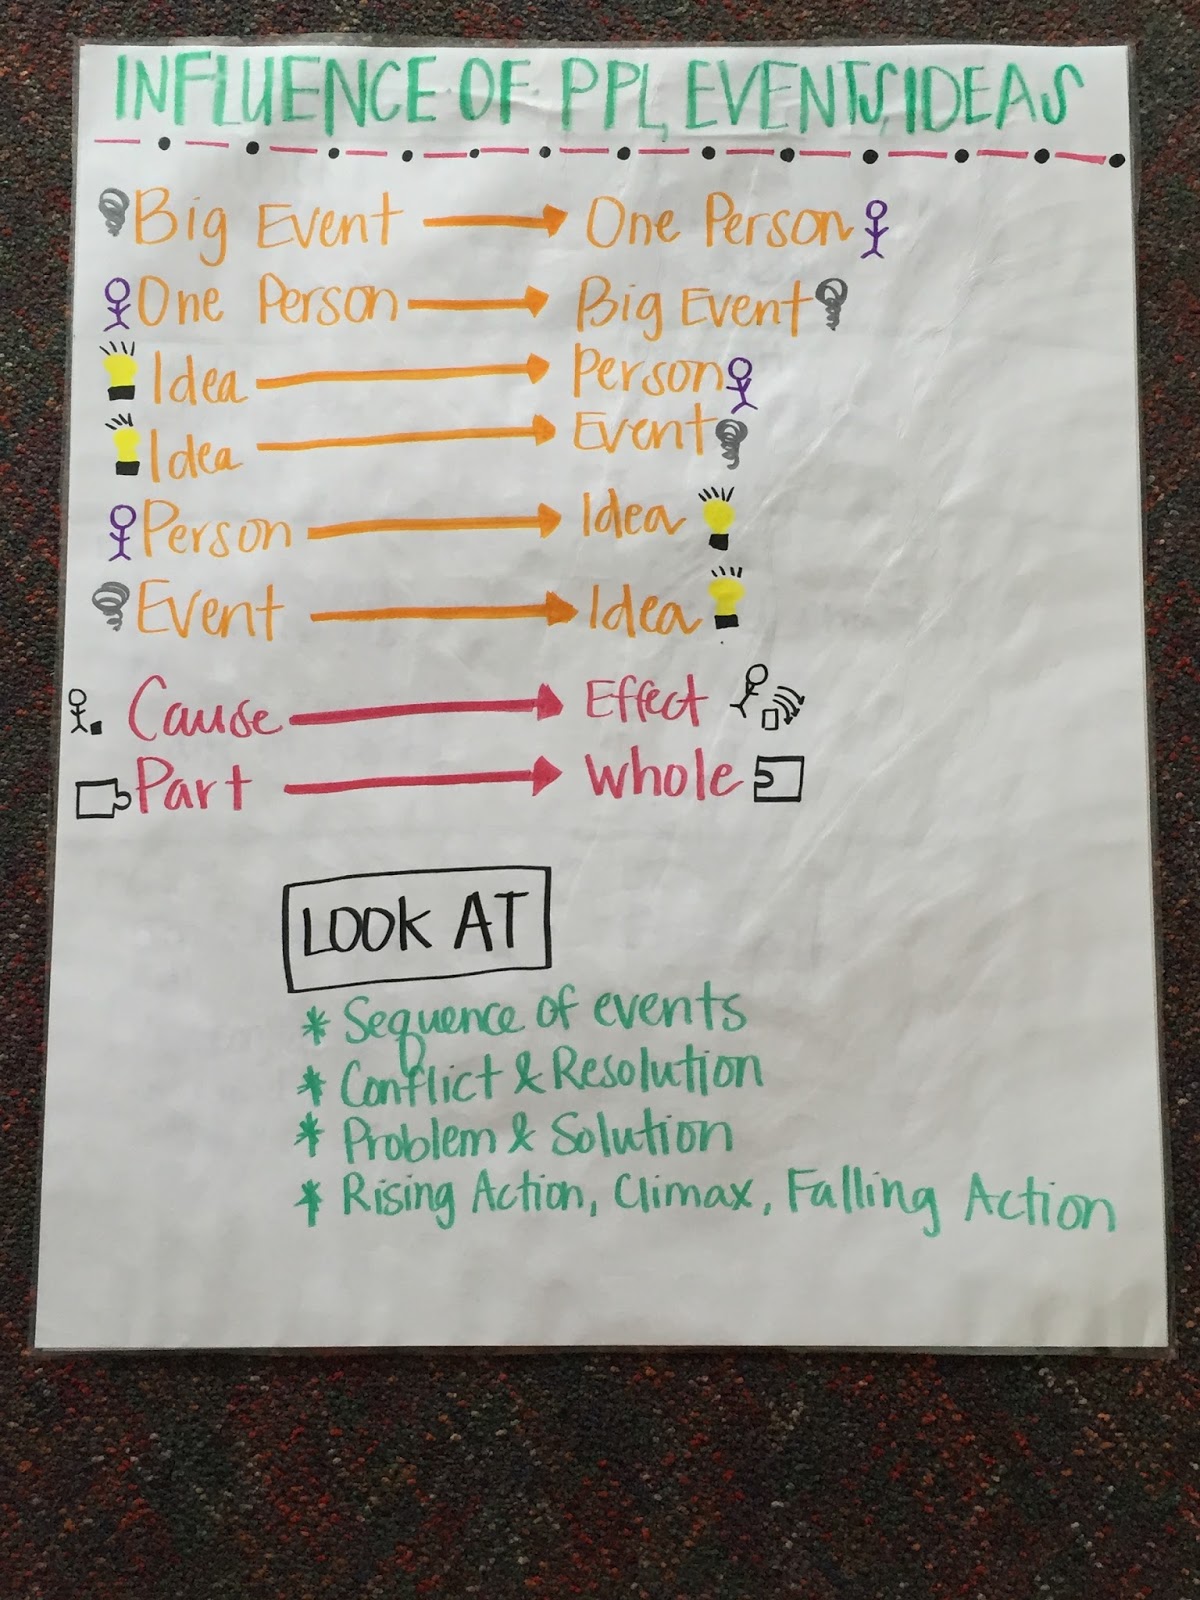 INFLUENCE OF PPL, EVENTS, IDEAS
Big Event → One Person
One Person → Big Event
Idea → Person
Idea → Event
Person → Idea
Event → Idea
Cause → Effect
Part → Whole
LOOK AT
* Sequence of events
* Conflict & Resolution
* Problem & Solution
* Rising Action, Climax, Falling Action